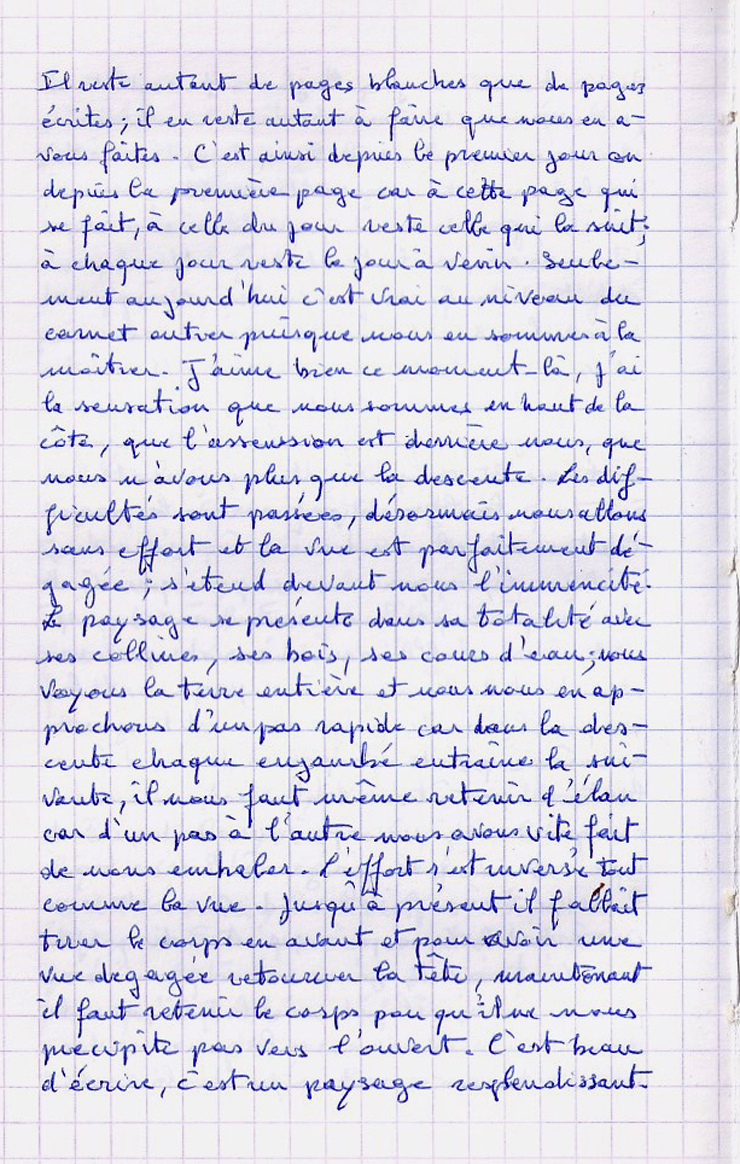 Il reste autant de pages blanches que de pages
écrites ; il en reste autant à faire que nous en a-
vons faites. C'est ainsi depuis le premier jour ou
depuis la première page car à cette page qui
se fait, à celle du jour reste celle qui la suit ;
à chaque jour reste le jour à venir. Seule-
ment aujourd'hui c'est vrai au niveau du
carnet entier puisque nous en sommes à la
moitier. J'aime bien ce moment-là, j'ai
la sensation que nous sommes en haut de la
côte, que l'assenssion est derrière nous, que
nous n'avons plus que la descente. Les dif-
ficultés sont passées, désormais nous allons
sans effort et la vue est parfaitement dé-
gagée ; s'étend devant nous l'immencité.
Le paysage se présente dans sa totalité avec
ses collines, ses bois, ses cours d'eau ; nous
voyons la terre entière et nous nous en ap-
prochons d'un pas rapide car dans la des-
cente chaque enjambé entraîne la sui-
vante, il nous faut même retenir l'élan
car d'un pas à l'autre nous avons vite fait
de nous emballer. L'effort s'est inversé tout
comme la vue. Jusqu'à présent il fallait
tirer le corps en avant et pour avoir une
vue dégagée retourner la tête, maintenant
il faut retenir le corps pour qu'il ne nous
précipite pas vers l'ouvert. C'est beau
d'écrire, c'est un paysage resplendissant.